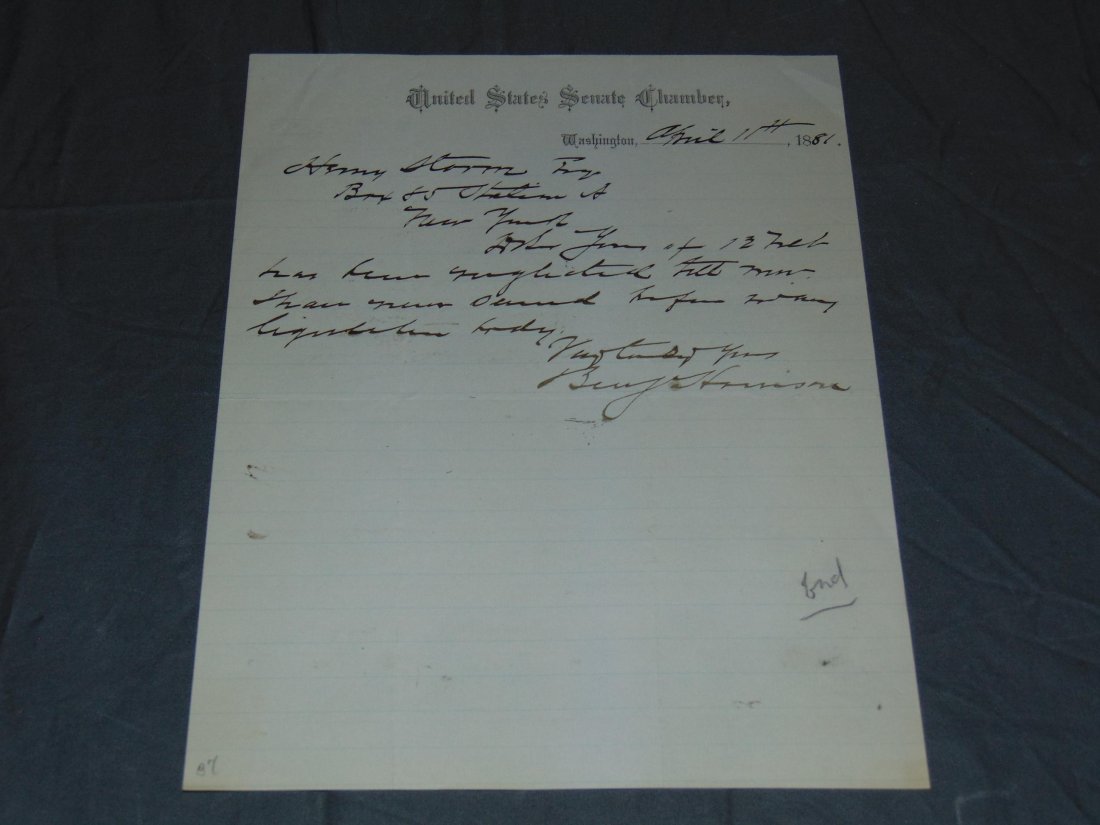 United States Senate Chamber,
Washington, April 11th, 1881.
Henry Storm Esq
Box 85 Station A
New York
Yours of 12 Feb
has been neglected till now.
I have never served before in any
legislative body.
Very truly Yours
Benj Harrison
End
87